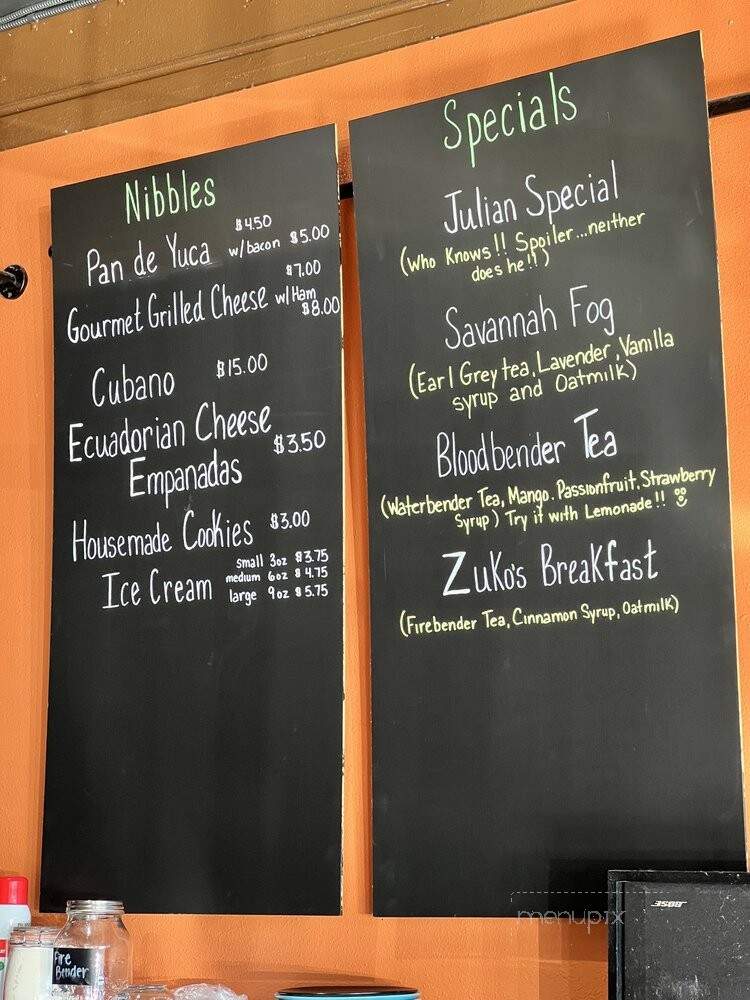 Nibbles
Pan de Yuca $4.50
w/bacon $5.00
Gourmet Grilled Cheese $7.00
w/Ham $8.00
Cubano $15.00
Ecuadorian Cheese
Empanadas $3.50
Housemade Cookies $3.00
Ice Cream small 3oz $3.75
medium 6oz $4.75
large 9oz $5.75
Specials
Julian Special
(Who Knows!! Spoiler...neither
does he!!)
Savannah Fog
(Earl Grey tea, Lavender, Vanilla
syrup and Oatmilk)
Bloodbender Tea
(Waterbender Tea, Mango. Passionfruit. Strawberry
Syrup) Try it with Lemonade!!
Zuko's Breakfast
(Firebender Tea, Cinnamon Syrup, Oatmilk)
Fire
Bender
BOSE
menupix